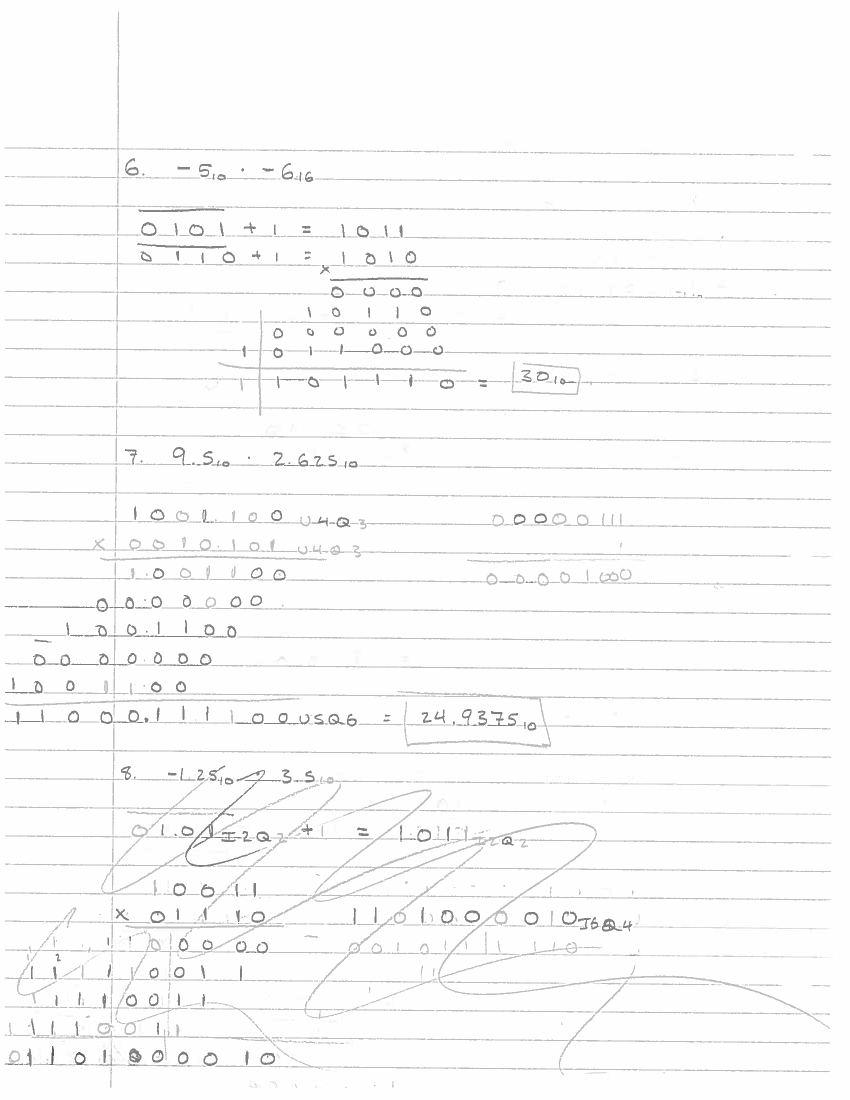 6. -5₁₀ · -6₁₆
0101 + 1 = 1011
0110 + 1 = 1010
×
0000
10110
000000
1 011000
1 101110 = 30₁₀
7. 9.5₁₀ · 2.625₁₀
1001.100 U4Q3 00000111
× 0010.101 U4Q3 1
1.001100 00001000
000.0000
1 00.1100
0000.000
1001100
11000.111100 U5Q6 = 24.9375₁₀
8. -1.25₁₀ 3.5₁₀
01.01 I2Q2 + 1 = 10.11 I2Q2
10011
× 01110 1101000010 I6Q4
11110011
11110011
01101000010